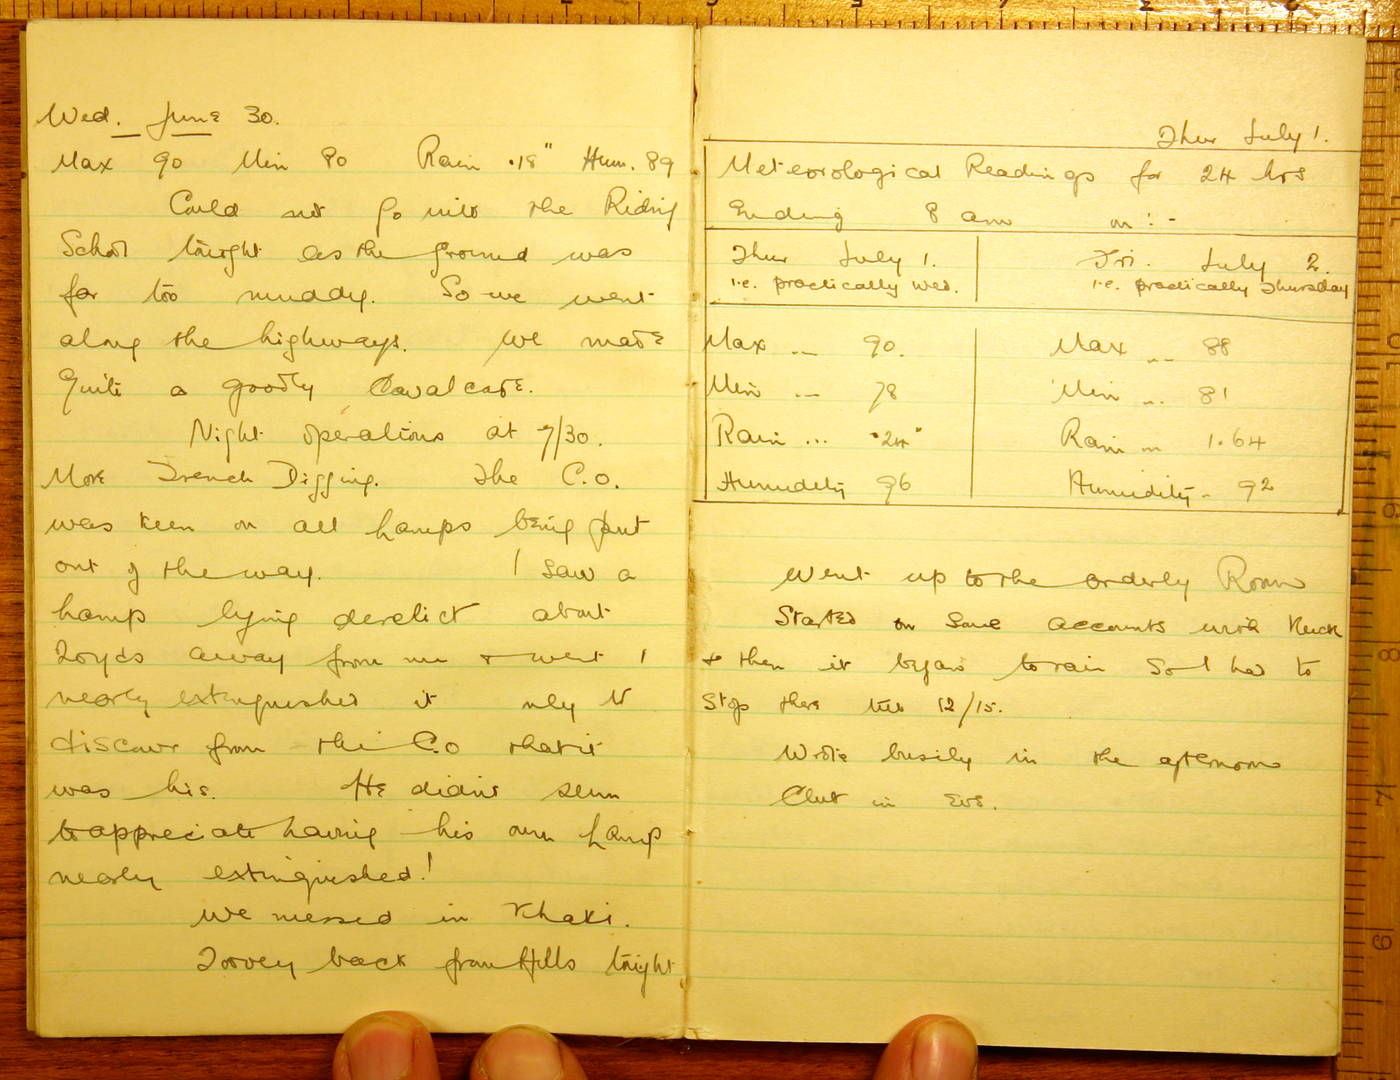 Wed. June 30.
Max 90 Min 80 Rain .18" Hum. 89
Could not go into the Riding
School tonight as the ground was
far too muddy. So we went
along the highways. We made
quite a goodly Cavalcade.
Night operations at 7/30.
More Trench Digging. The C.O.
was keen on all lamps being put
out of the way. I saw a
lamp lying derelict about
20yds away from me & went &
nearly extinguished it only to
discover from the C.O that it
was his. He didn't seem
to appreciate having his own lamp
nearly extinguished!
We messed in Khaki.
back from Hills tonight
Thur July 1.
Meteorological Readings for 24 hrs
Ending 8 am on :-
Thur July 1. Fri. July 2.
i.e. practically Wed. i.e. practically Thursday
Max ... 90. Max ... 88
Min ... 78 Min ... 81
Rain ... .24" Rain ... 1.64
Humidity 96 Humidity - 92
Went up to the orderly Room
Started on some accounts with
& then it began to rain so I had to
stop there till 12/15.
Wrote busily in the afternoon
Club in Eve.
6
7
8